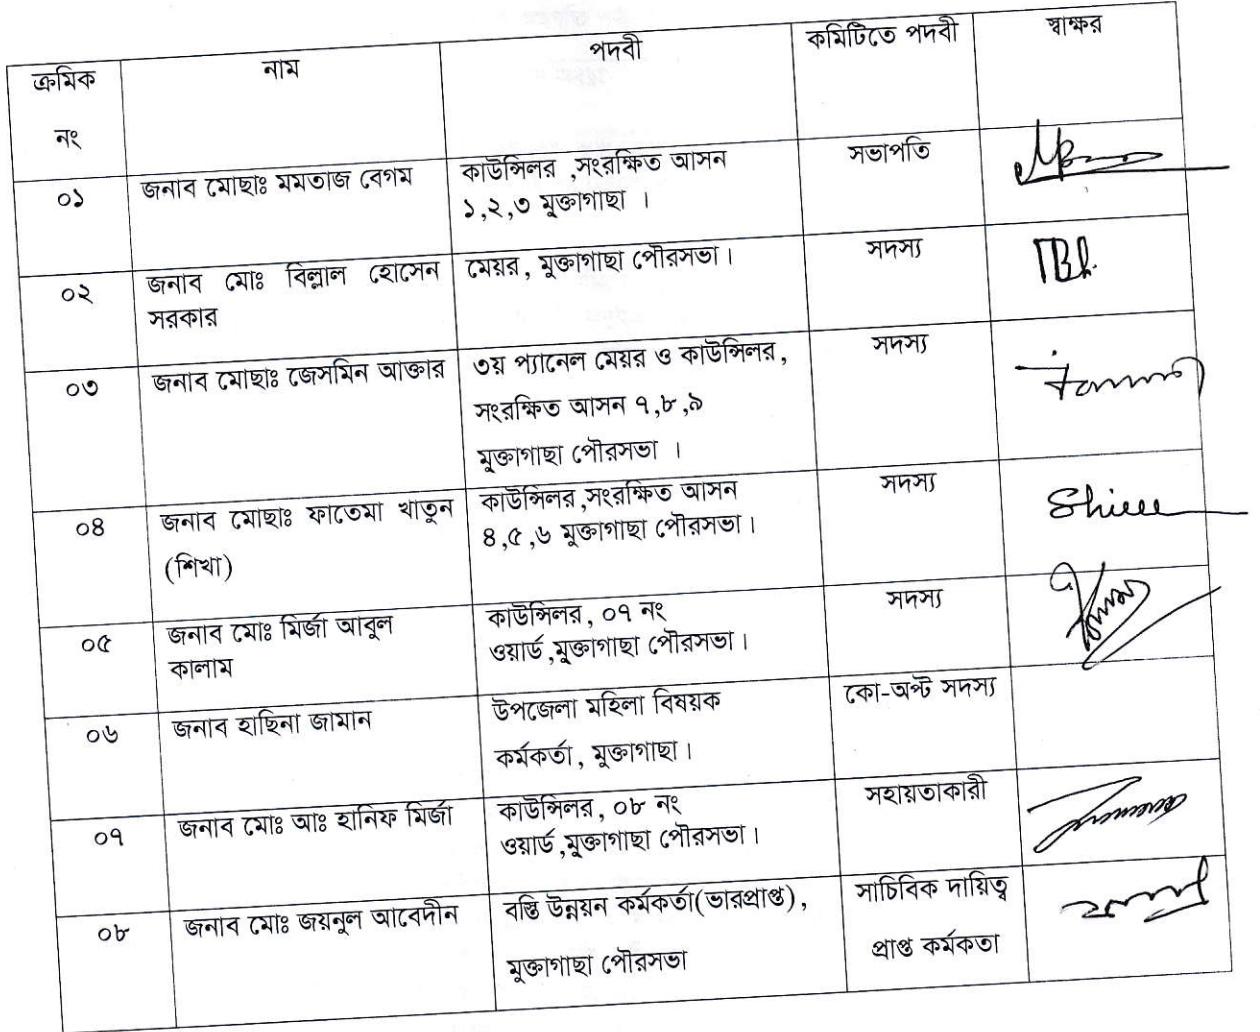 ক্রমিক
নং
নাম
পদবী
কমিটিতে পদবী
স্বাক্ষর
০১
জনাব মোছাঃ মমতাজ বেগম
কাউন্সিলর ,সংরক্ষিত আসন
১,২,৩ মুক্তাগাছা ।
সভাপতি
০২
জনাব মোঃ বিল্লাল হোসেন
সরকার
মেয়র, মুক্তাগাছা পৌরসভা।
সদস্য
০৩
জনাব মোছাঃ জেসমিন আক্তার
৩য় প্যানেল মেয়র ও কাউন্সিলর,
সংরক্ষিত আসন ৭,৮,৯
মুক্তাগাছা পৌরসভা ।
সদস্য
০৪
জনাব মোছাঃ ফাতেমা খাতুন
(শিখা)
কাউন্সিলর,সংরক্ষিত আসন
৪,৫,৬ মুক্তাগাছা পৌরসভা।
সদস্য
০৫
জনাব মোঃ মির্জা আবুল
কালাম
কাউন্সিলর, ০৭ নং
ওয়ার্ড,মুক্তাগাছা পৌরসভা।
সদস্য
০৬
জনাব হাছিনা জামান
উপজেলা মহিলা বিষয়ক
কর্মকর্তা, মুক্তাগাছা।
কো-অপ্ট সদস্য
০৭
জনাব মোঃ আঃ হানিফ মির্জা
কাউন্সিলর, ০৮ নং
ওয়ার্ড,মুক্তাগাছা পৌরসভা।
সহায়তাকারী
০৮
জনাব মোঃ জয়নুল আবেদীন
বস্তি উন্নয়ন কর্মকর্তা(ভারপ্রাপ্ত),
মুক্তাগাছা পৌরসভা
সাচিবিক দায়িত্ব
প্রাপ্ত কর্মকতা